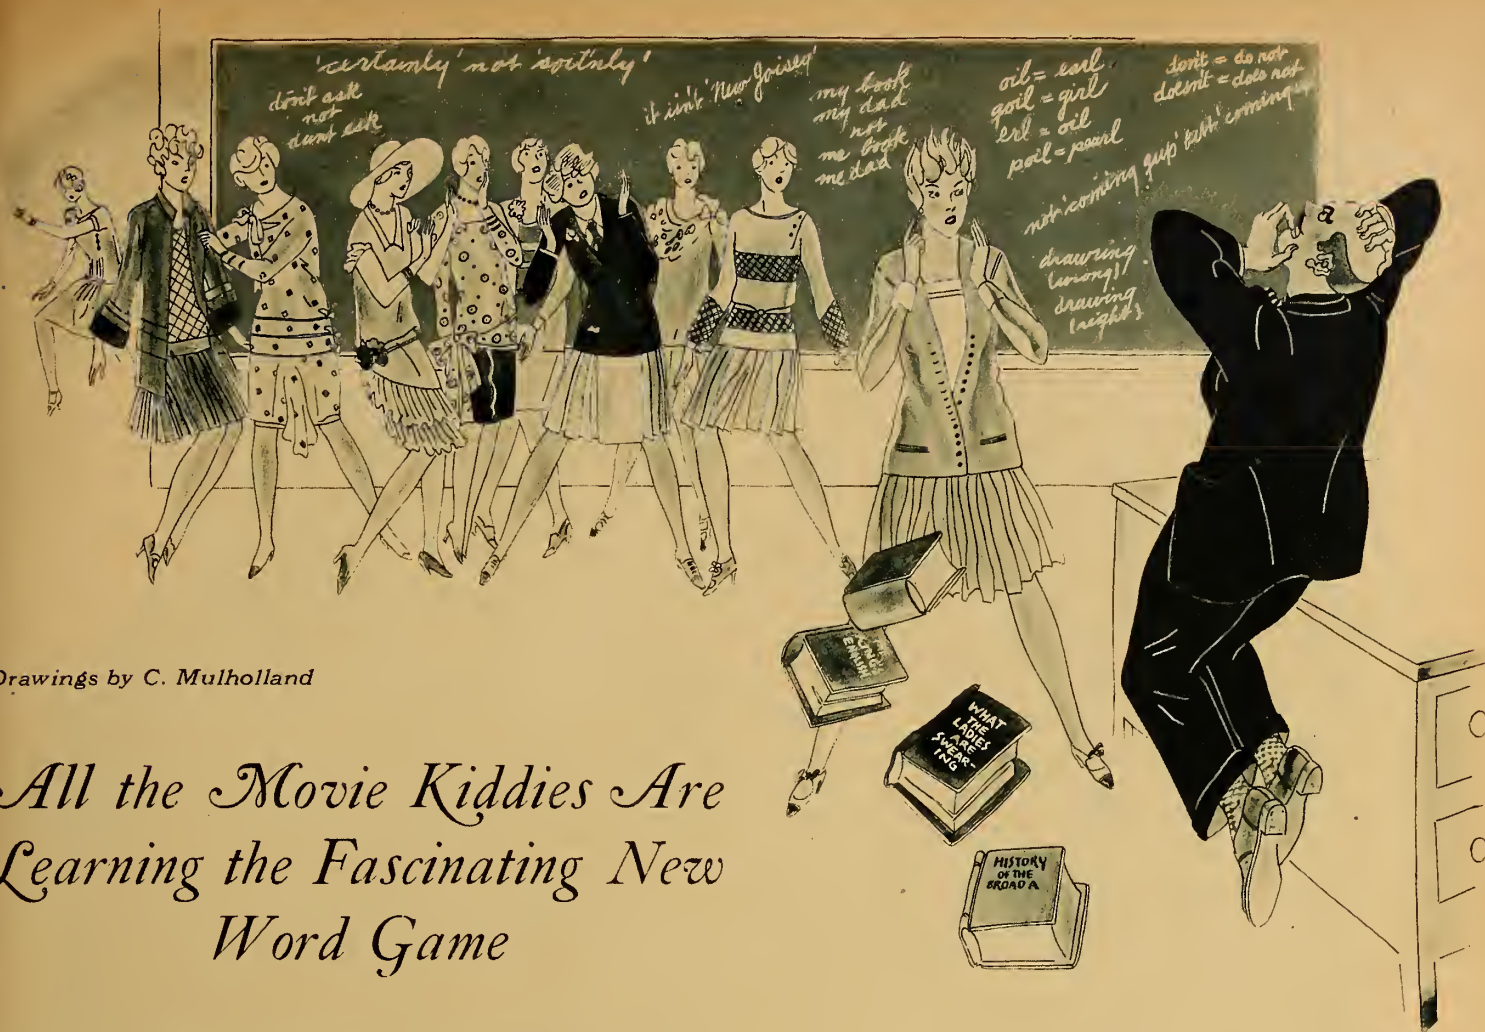 'certainly' not 'soitnly'
don't ask
not
dunt esk
it isn't 'New Joisey'
my book
my dad
not
me book
me dad
oil = earl
goil = girl
erl = oil
poil = pearl
don't = do not
doesn't = does not
not 'coming gup' but 'coming up'
drawring
(wrong)
drawing
(right)
a
WHAT
THE
LADIES
ARE
SWEAR-
ING
HISTORY
OF THE
BROAD A
Drawings by C. Mulholland
All the Movie Kiddies Are
Learning the Fascinating New
Word Game